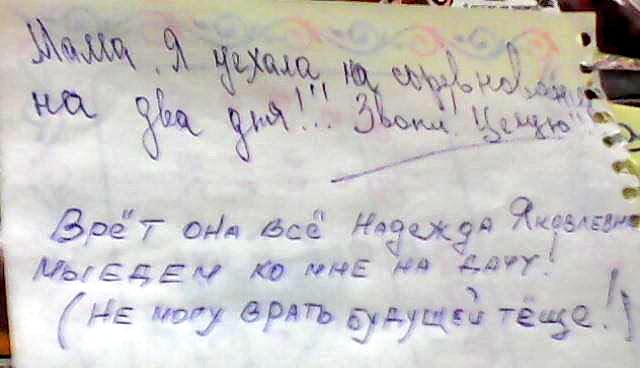 Мама, Я уехала на соревнования
на два дня!!! Звони! Целую!!!
Врёт она всё Надежда Яковлевна
мы едем ко мне на дачу!
(Не могу врать будущей тёще!)